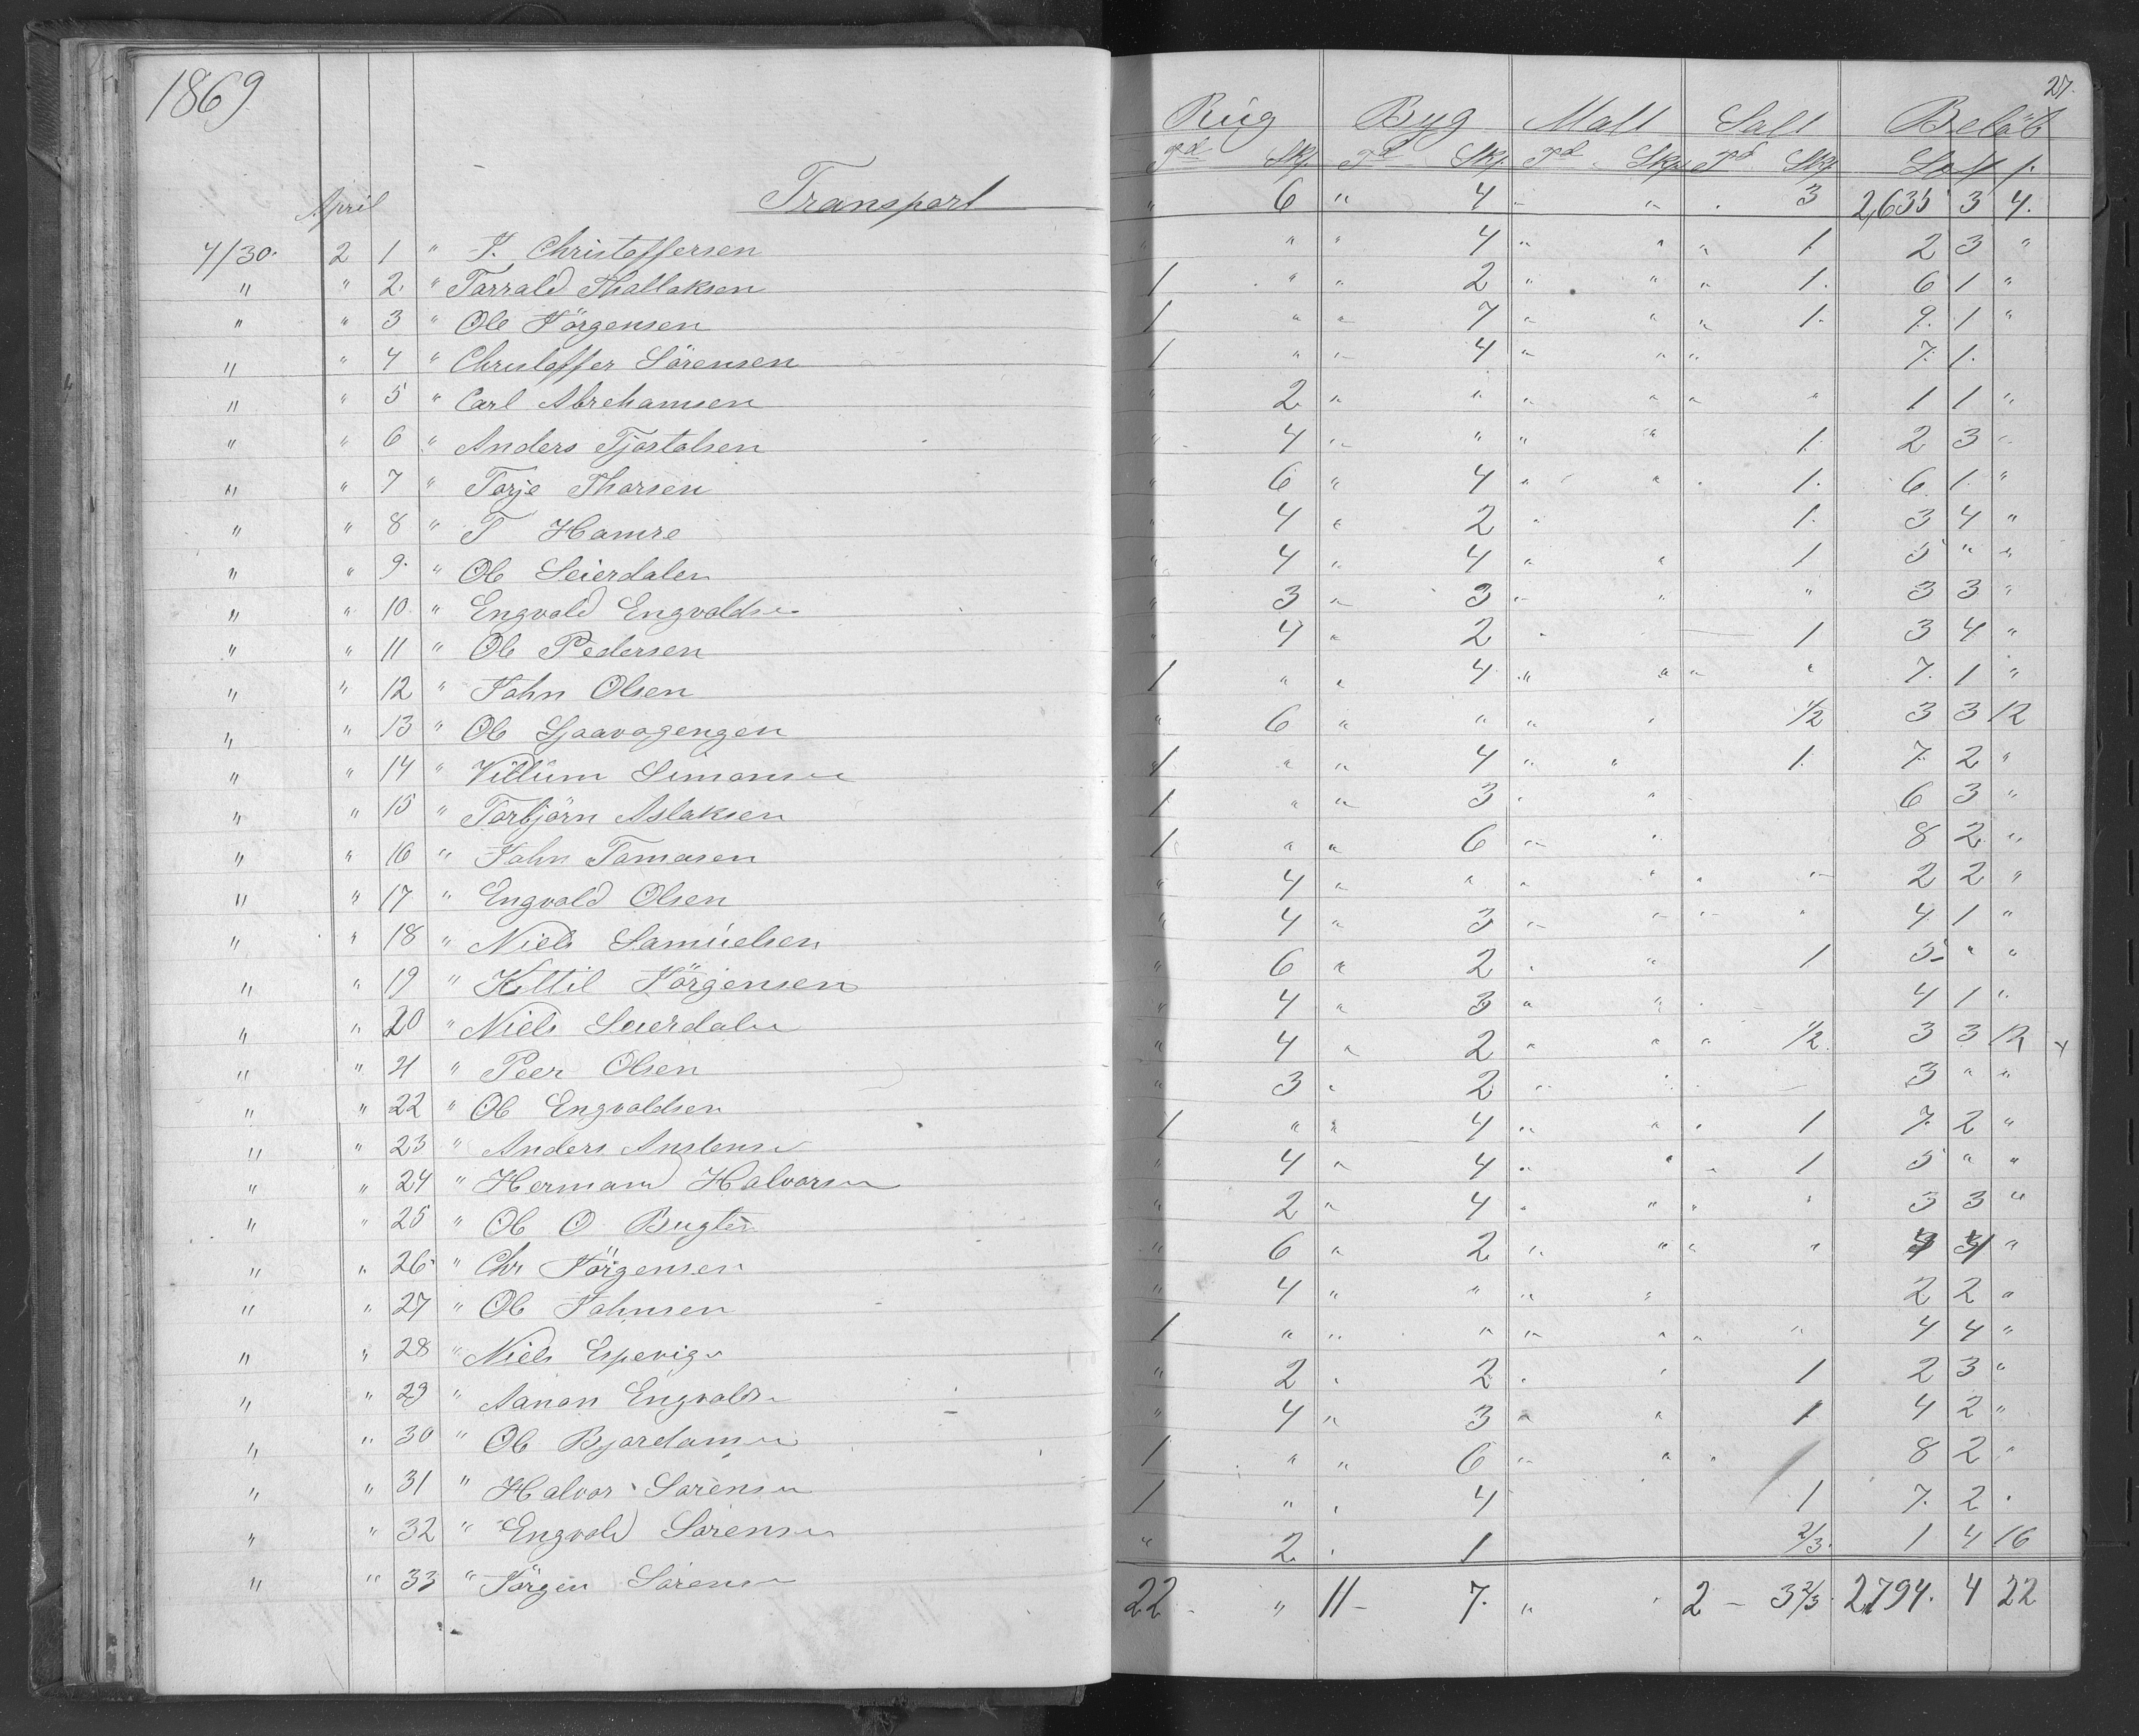 1869
27.
Rug Byg Malt Salt Beløb
Td Skp. Td Skp. Td Skp. Td Skp.
April
Transport " 6 " 4 " " . 3 2,635 3 4.
4/30. 2 1 " J. Christoffersen " " " 4 " " " 1. 2 3 "
" " 2. " Tarrald Thallaksen 1 " " 2 " " " 1. 6 1 "
" " 3 " Ole Jörgensen 1 " " 7 " " " 1. 9. 1 "
" " 4 " Christoffer Sörensen 1 " " 4 " " " 7. 1.
" " 5 " Carl Abrehamsen " 2 " " " " " " 1 1 "
" " 6 " Anders Tjostolsen " 4 " " " " 1. 2 3 "
" " 7 " Torje Thorsen " 6 " 4 " " . 1. 6. 1. "
" " 8 " T Hamre " 4 " 2 " 1. 3 4 "
" " 9. " Ole Seierdalen " 4 " 4 " " 1 5 " "
" " 10. " Engvald Engvaldsen " 3 " 3 " " " 3 3 "
" " 11 " Ole Pedersen " 4 " 2 " 1 3 4 "
" " 12 " John Olsen 1 " " 4 " " " " 7. 1 "
" " 13 " Ole " 6 " " " " 1/2 3 3 12
" " 14 " Villum Simonsen 1 " " 4 " " 1. 7. 2 "
" " 15 " Torbjörn Aslaksen 1 " " 3 " " 6 3 "
" " 16 " John Tomasen 1 " " 6 " " 8 2 "
" " 17 " Engvald Olsen " 4 " " " " " " 2 2 "
" " 18 " Niels Samuelsen " 4 " 3 " " " " 4 1 "
" " 19 " Kittil Jörgensen " 6 " 2 " " 1 5 " "
" " 20 " Niels Seierdalen " 4 " 3 " " . 4 1 "
" " 21 " Peer Olsen " 4 " 2 " " " 1/2 3 3 12
" " 22 " Ole Engvaldsen " 3 " 2 " " 3 " "
" " 23 " Anders 1 " " 4 " " " 1 7. 2 "
" " 24 " Hermand Halvorsen " 4 " 4 " " " 1 5 " "
" " 25 " Ole O Bugten " 2 " 4 " " " " 3 3 "
" " 26 " Chr Jörgensen " 6 " 2 " " " " 4 4 "
" " 27 " Ole Johnsen " 4 " " " " 2 2 "
" " 28 " Niels Espevigen 1 " " " " " " " 4 4 "
" " 29 " Aanon Engvaldsen " 2 " 2 " " 1 2 3 "
" " 30 " Ole " 4 " 3 " " 1 4 2 "
" " 31 " Halvor Sörensen 1 " " 6 " " " 8 2 "
" " 32 " Engvold Sörensen 1 " " 4 1 7. 2 .
" " 33 " Jörgen Sörensen " 2 " 1 2/3. 1 4 16
22 - " 11 - 7. " " 2 - 3 2/3. 2794. 4 22